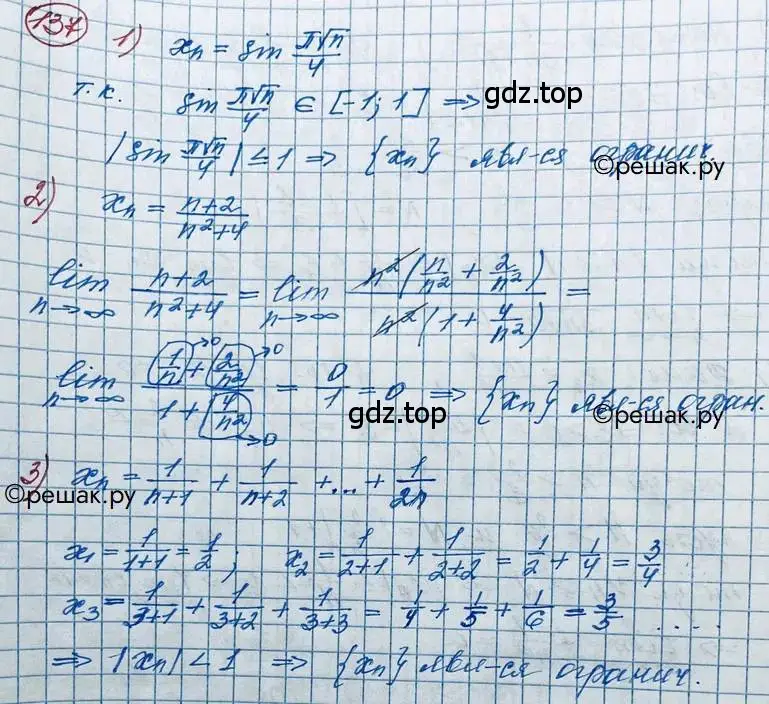 137 1) xₙ = sin π√n/4
т.к. sin π√n/4 ∈ [-1; 1] ⇒ gdz.top
|sin π√n/4| ≤ 1 ⇒ {xₙ} явл-ся огранич.
©решак.ру
2) xₙ = n+2/n²+4
lim n→∞ n+2/n²+4 = lim n→∞ n²(n/n² + 2/n²)/n²(1 + 4/n²) =
lim n→∞ (1/n)→0 + (2/n²)→0 / 1 + (4/n²)→0 = 0/1 = 0 ⇒ {xₙ} явл-ся огран.
gdz.top ©решак.ру
3) xₙ = 1/n+1 + 1/n+2 + ... + 1/2n
©решак.ру
x₁ = 1/1+1 = 1/2; x₂ = 1/2+1 + 1/2+2 = 1/2 + 1/4 = 3/4
x₃ = 1/3+1 + 1/3+2 + 1/3+3 = 1/4 + 1/5 + 1/6 = 3/5 ....
⇒ |xₙ| < 1 ⇒ {xₙ} явл-ся огранич.